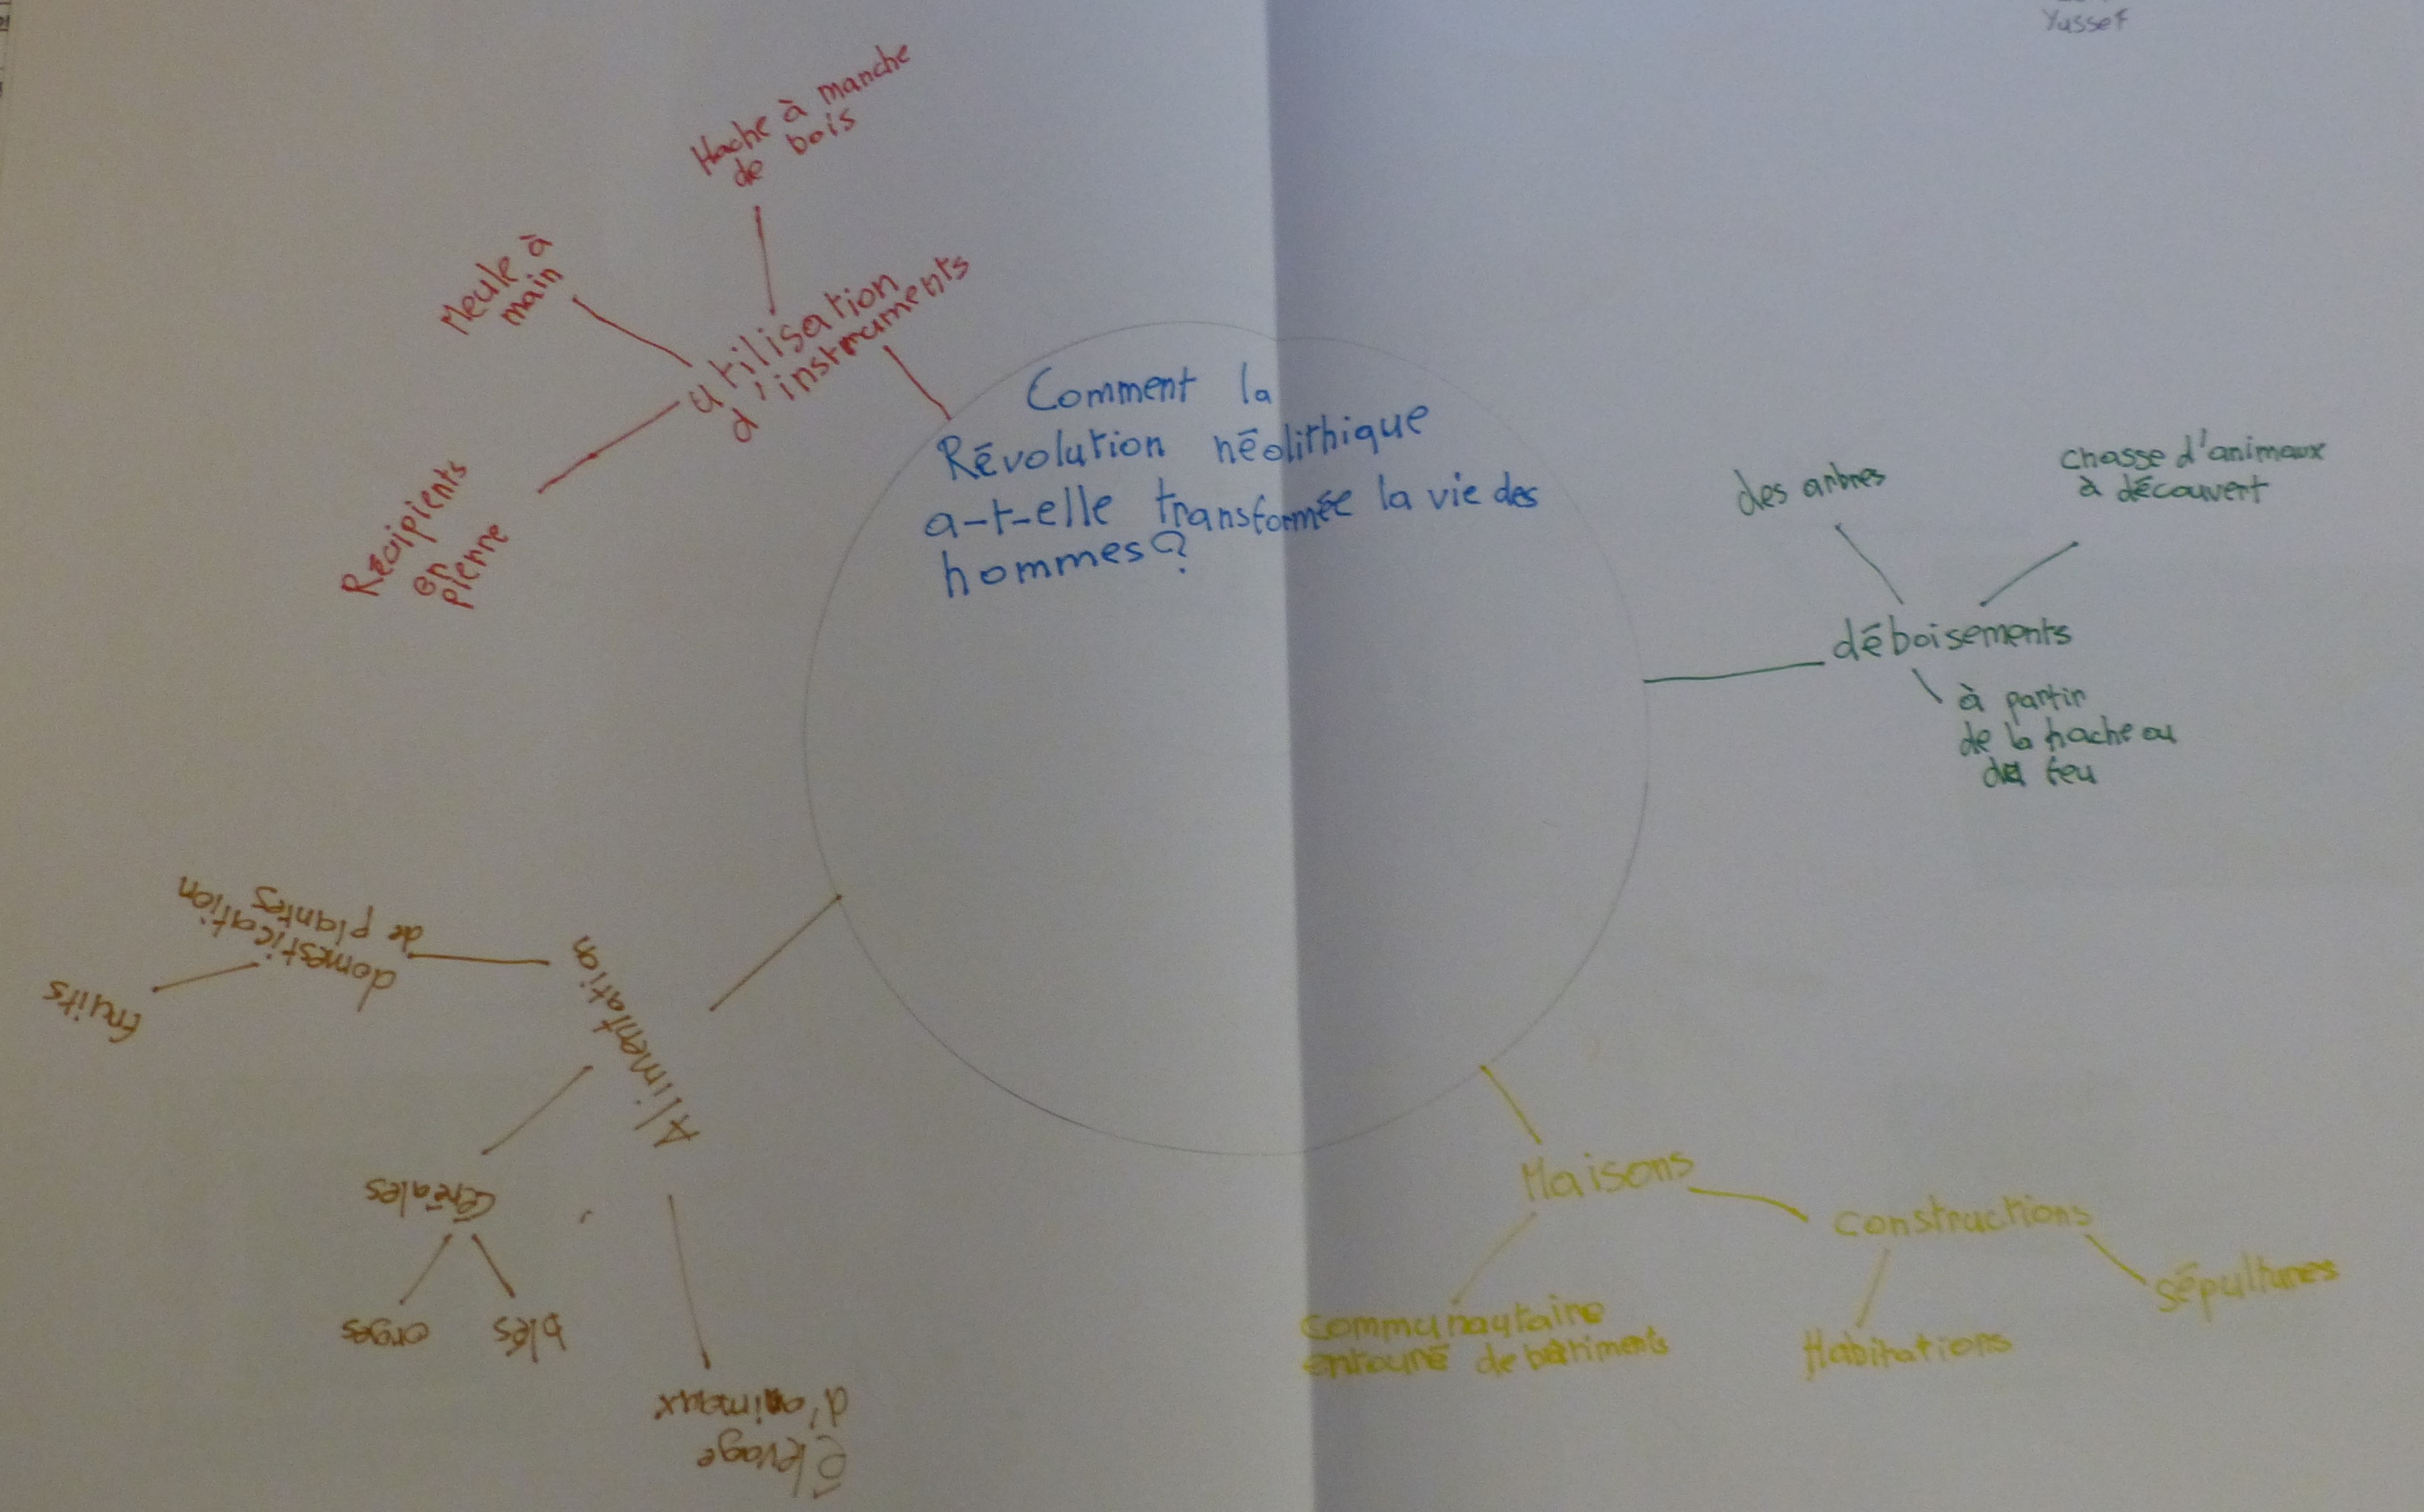 Yussef
Hache à manche
de bois
Meule à
main
utilisation
d'instruments
Récipients
en
pierre
Comment la
Révolution néolithique
a-t-elle transformée la vie des
hommes?
des arbres
chasse d'animaux
à découvert
déboisements
à partir
de la hache ou
du feu
Alimentation
domestication
de plantes
fruits
Céréales
blés
orges
Élevage
d'animaux
Maisons
Constructions
Sépultures
Habitations
Communautaire
entouré de bâtiments